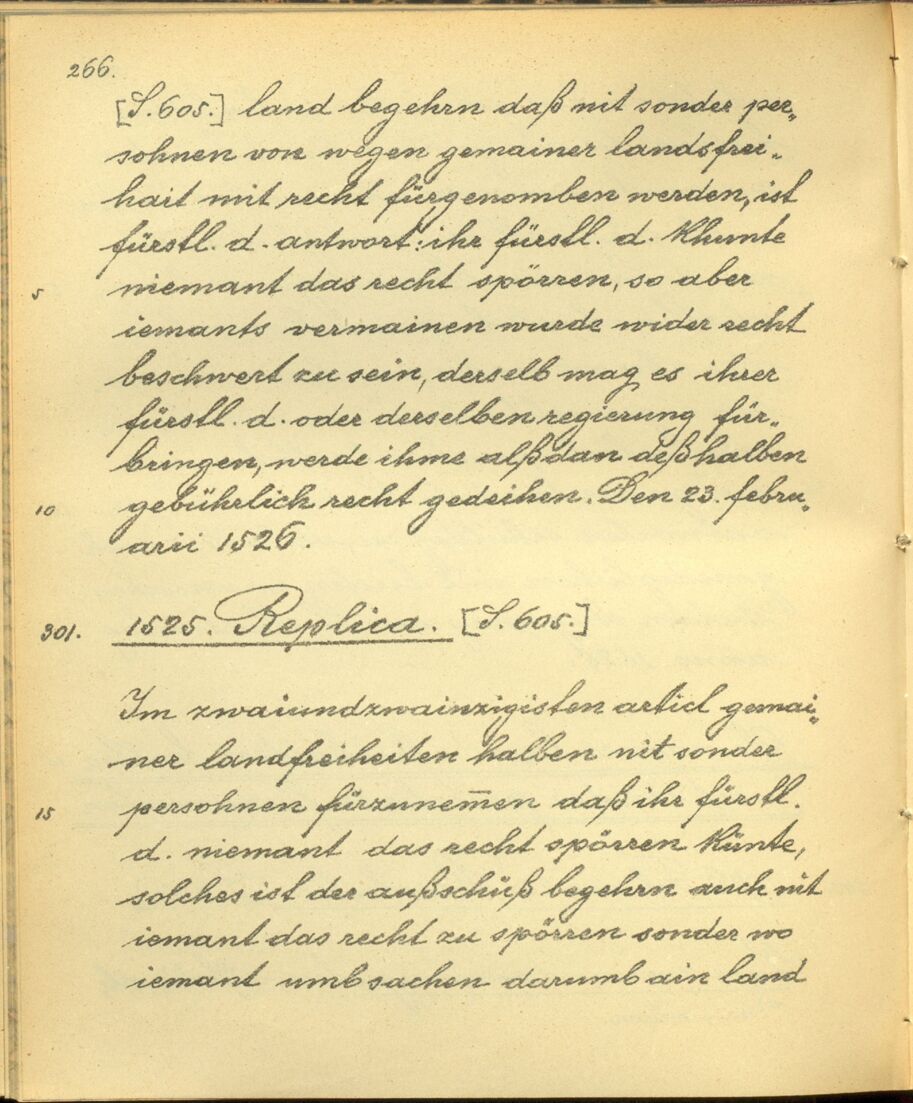 266.
[S. 605.] land begehrn daß nit sonder per„
sohnen von wegen gemainer landsfrei„
hait mit recht fürgenomben werden, ist
fürstl. d. antwort: ihr fürstl. d. khunte
5 niemant das recht spörren, so aber
iemants vermainen wurde wider recht
beschwert zu sein, derselb mag es ihrer
fürstl. d. oder derselben regierung für„
bringen, werde ihme alßdan deßhalben
10 gebührlich recht gedeihen. Den 23. febru„
arii 1526.
301. 1525. Replica. [S. 605.]
Im zwaiundzwainzigisten articl gemai„
ner landfreiheiten halben nit sonder
15 persohnen fürzunem̅en daß ihr fürstl.
d. niemant das recht spörren künte,
solches ist der außschüß begehrn auch nit
iemant das recht zu spörren sonder wo
iemant umb sachen darumb ain land